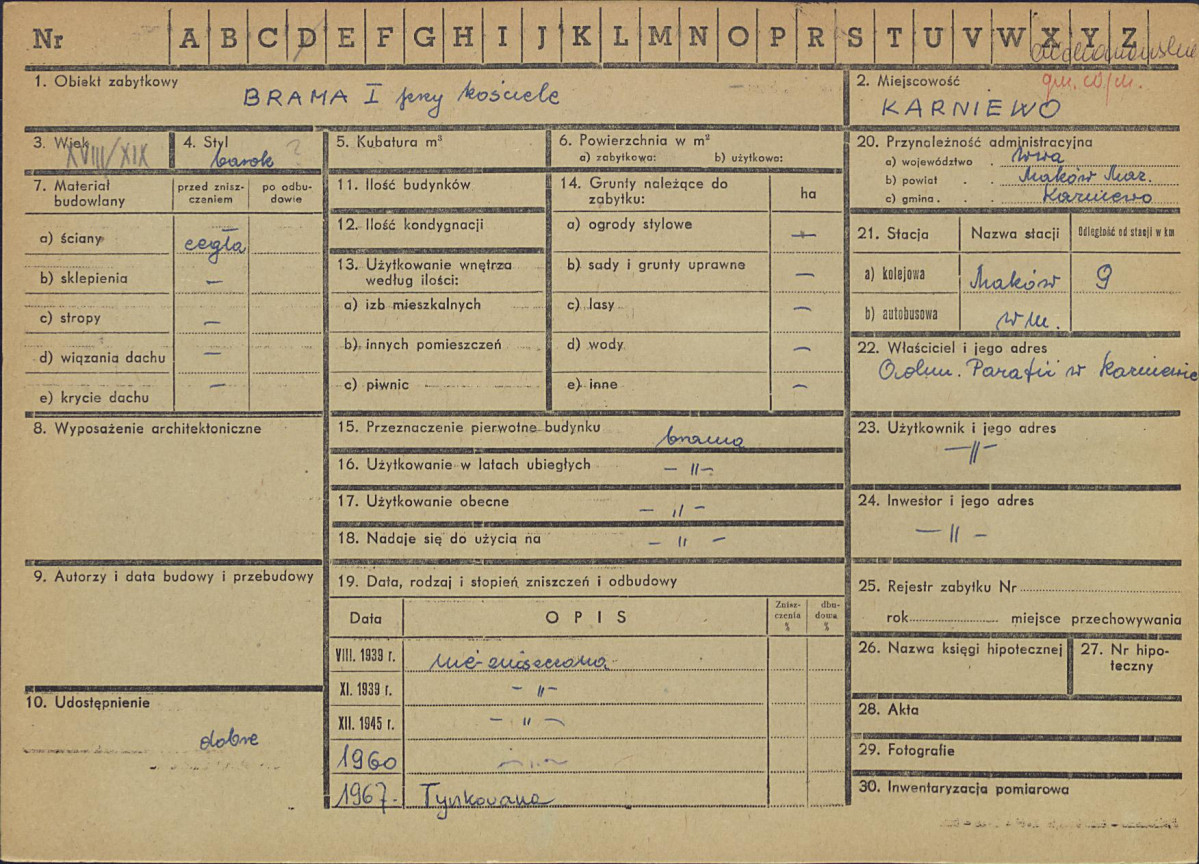 Nr A B C D E F G H I J K L M N O P R S T U V W X Y Z
1. Obiekt zabytkowy
BRAMA I przy kościele
2. Miejscowość
gm. w/m.
KARNIEWO
3. Wiek
XVIII/XIX
4. Styl
barok ?
5. Kubatura m³
6. Powierzchnia w m²
a) zabytkowa: b) użytkowa:
20. Przynależność administracyjna
a) województwo . W-wa
b) powiat . . Maków Maz.
c) gmina . . Karniewo
7. Materiał budowlany
przed znisz-
czeniem
po odbu-
dowie
a) ściany cegła
b) sklepienia —
c) stropy —
d) wiązania dachu —
e) krycie dachu —
11. Ilość budynków
12. Ilość kondygnacji
13. Użytkowanie wnętrza
według ilości:
a) izb mieszkalnych
b) innych pomieszczeń
c) piwnic
14. Grunty należące do
zabytku:
ha
a) ogrody stylowe —
b) sady i grunty uprawne —
c) lasy —
d) wody —
e) inne —
21. Stacja Nazwa stacji Odległość od stacji w km
a) kolejowa Maków 9
b) autobusowa w m.
22. Właściciel i jego adres
Parafii w Karniewie
8. Wyposażenie architektoniczne
15. Przeznaczenie pierwotne budynku brama
16. Użytkowanie w latach ubiegłych — „ —
17. Użytkowanie obecne — „ —
18. Nadaje się do użycia na — „ —
23. Użytkownik i jego adres
— „ —
24. Inwestor i jego adres
— „ —
9. Autorzy i data budowy i przebudowy
19. Data, rodzaj i stopień zniszczeń i odbudowy
Data OPIS
Znisz-
czenia
%
dbu-
dowa
%
VIII. 1939 r. nie zniszczona
XI. 1939 r. — „ —
XII. 1945 r. — „ —
1960 — „ —
1967. Tynkowana
10. Udostępnienie
dobre
25. Rejestr zabytku Nr
rok miejsce przechowywania
26. Nazwa księgi hipotecznej
27. Nr hipo-
teczny
28. Akta
29. Fotografie
30. Inwentaryzacja pomiarowa